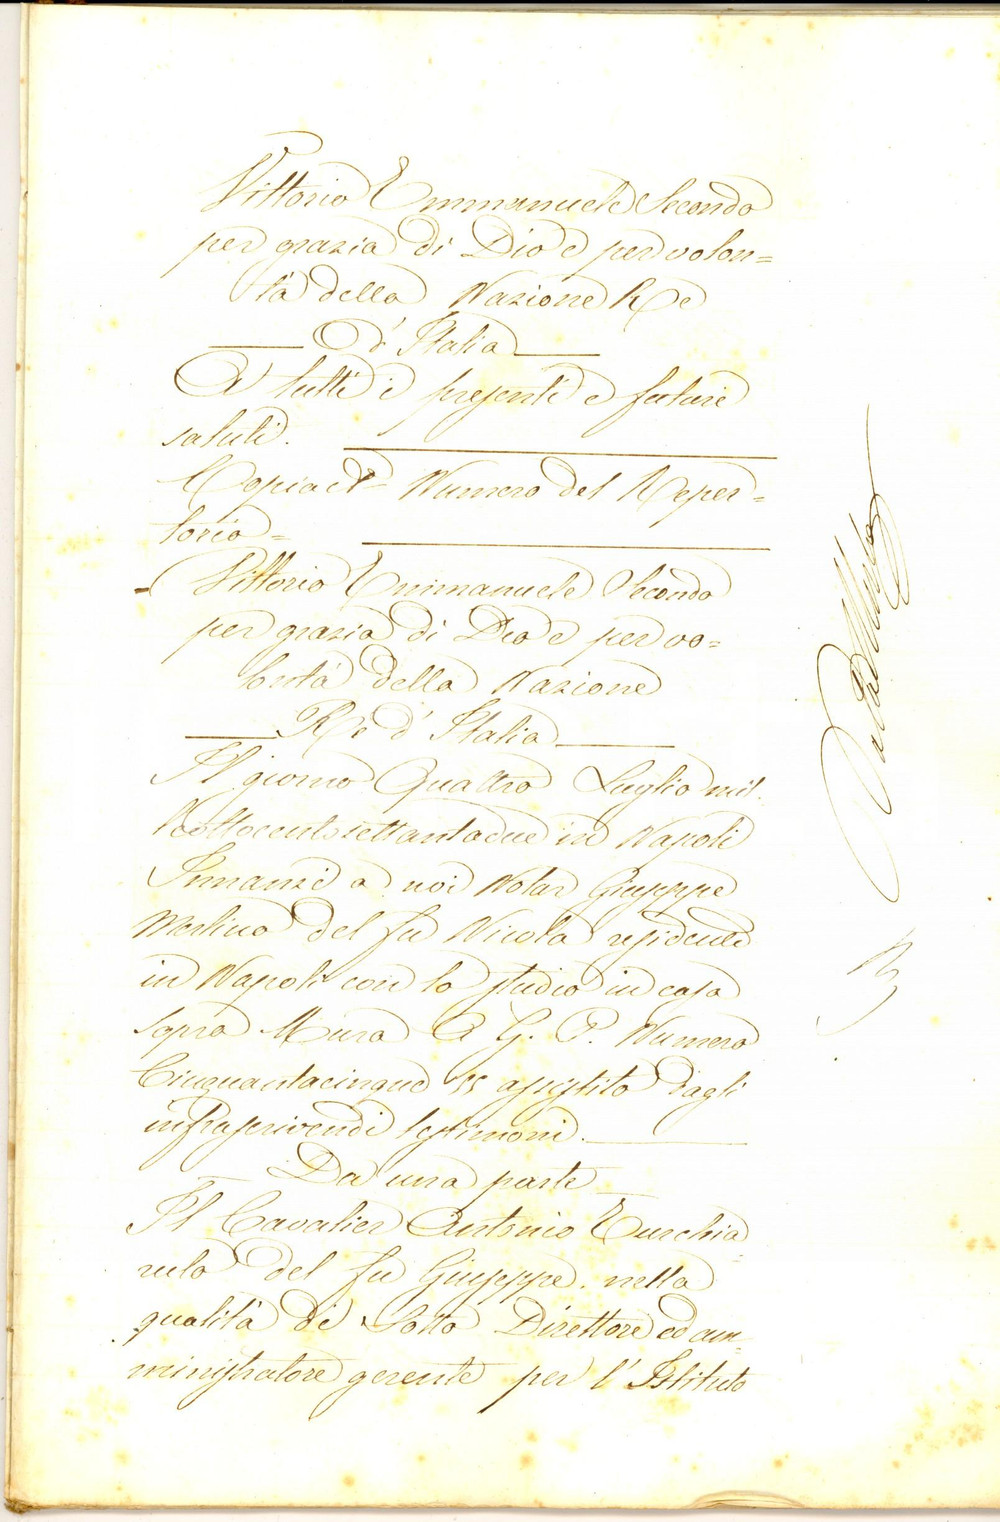 Vittorio Emmanuele Secondo
per grazia di Dio e per volon=
tà della Nazione Re
d'Italia
A tutti i presenti e future
saluti.
Copia Numero del Reper=
torio=
Vittorio Emmanuele Secondo
per grazia di Dio e per vo=
lontà della Nazione
Re d'Italia
Il giorno Quattro Luglio mil
lottocentosettantadue in Napoli
Innanzi a noi Notar Giuseppe
Merlino del fu Nicola residente
in Napoli con lo studio in casa
sopra Mura A G. P. Numero
Cinquantacinque 55 assistito dagli
infrascrivendi testimoni.
Da una parte
Il Cavalier Antonio Turchia
rulo del fu Giuseppe nella
qualità di Sotto Direttore ed am
ministratore gerente per l'Istituto